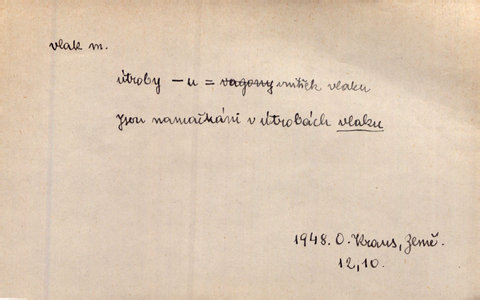 vlak m.
útroby – u = vagony vnitřek vlaku
Jsou namačkáni v útrobách vlaku
1948. O. Kraus, Země.
12, 10.